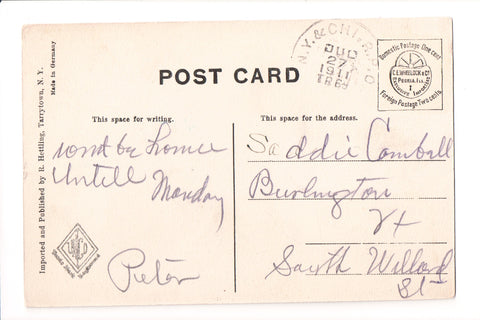 N.Y. & CHI. R.P.O
AUG
27
1911
Domestic Postage One cent
C.E. WHEELOCK & Co
PEORIA, ILL.
Foreign Postage Two cents.
POST CARD
Imported and Published by R. Hettling, Tarrytown, N. Y.
Made in Germany
This space for writing.
This space for the address.
wont be home
Untill
Monday
Peter
Saddie Cambell
Burlington
Vt
South Willard
St